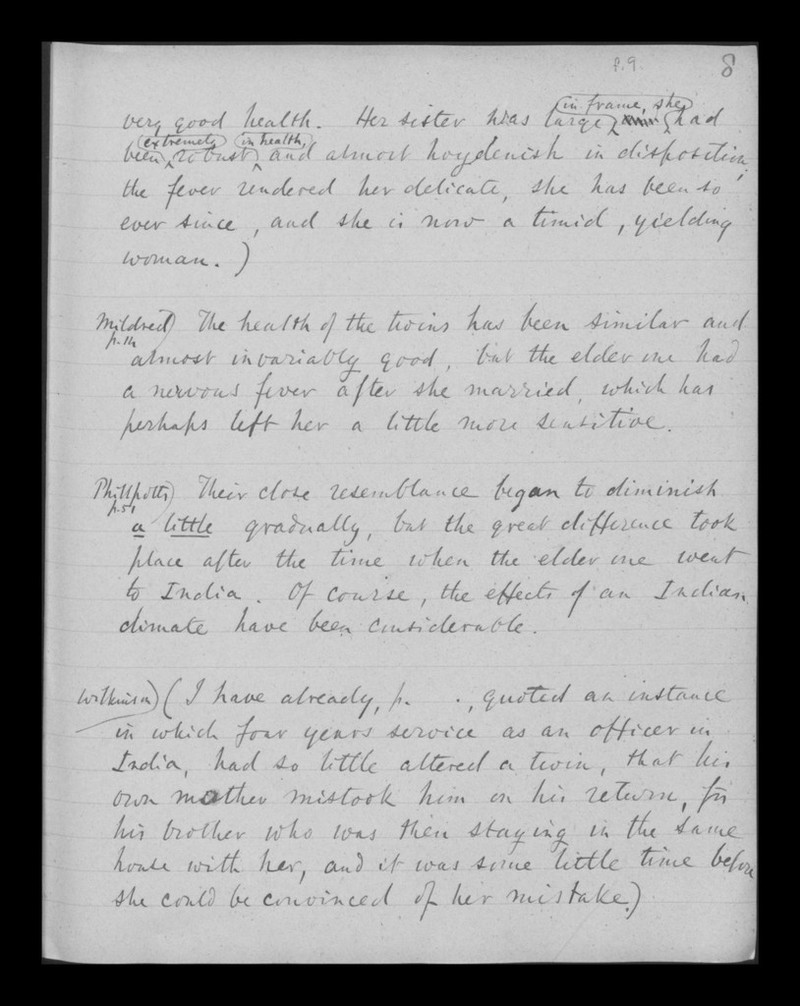 p.9.
8
in frame, she
very good health. Her sister was large, had
extremely in health,
been robust and almost hoydenish in disposition,
the fever rendered her delicate, she has been so
ever since, and she is now a timid, yielding
woman.)
Mildred) The health of the twins has been similar and
almost invariably good, but the elder one had
a nervous fever after she married, which has
perhaps left her a little more sensitive.
Phillpotts) Their close resemblance began to diminish
p.51
a little gradually, but the great difference took
place after the time when the elder one went
to India. Of course, the effects of an Indian
climate have been considerable.
Wilkinson) (I have already, p. ., quoted an instance
in which four years service as an officer in
India, had so little altered a twin, that his
own mother mistook him on his return, for
his brother who was then staying in the same
house with her, and it was some little time before
she could be convinced of her mistake.)